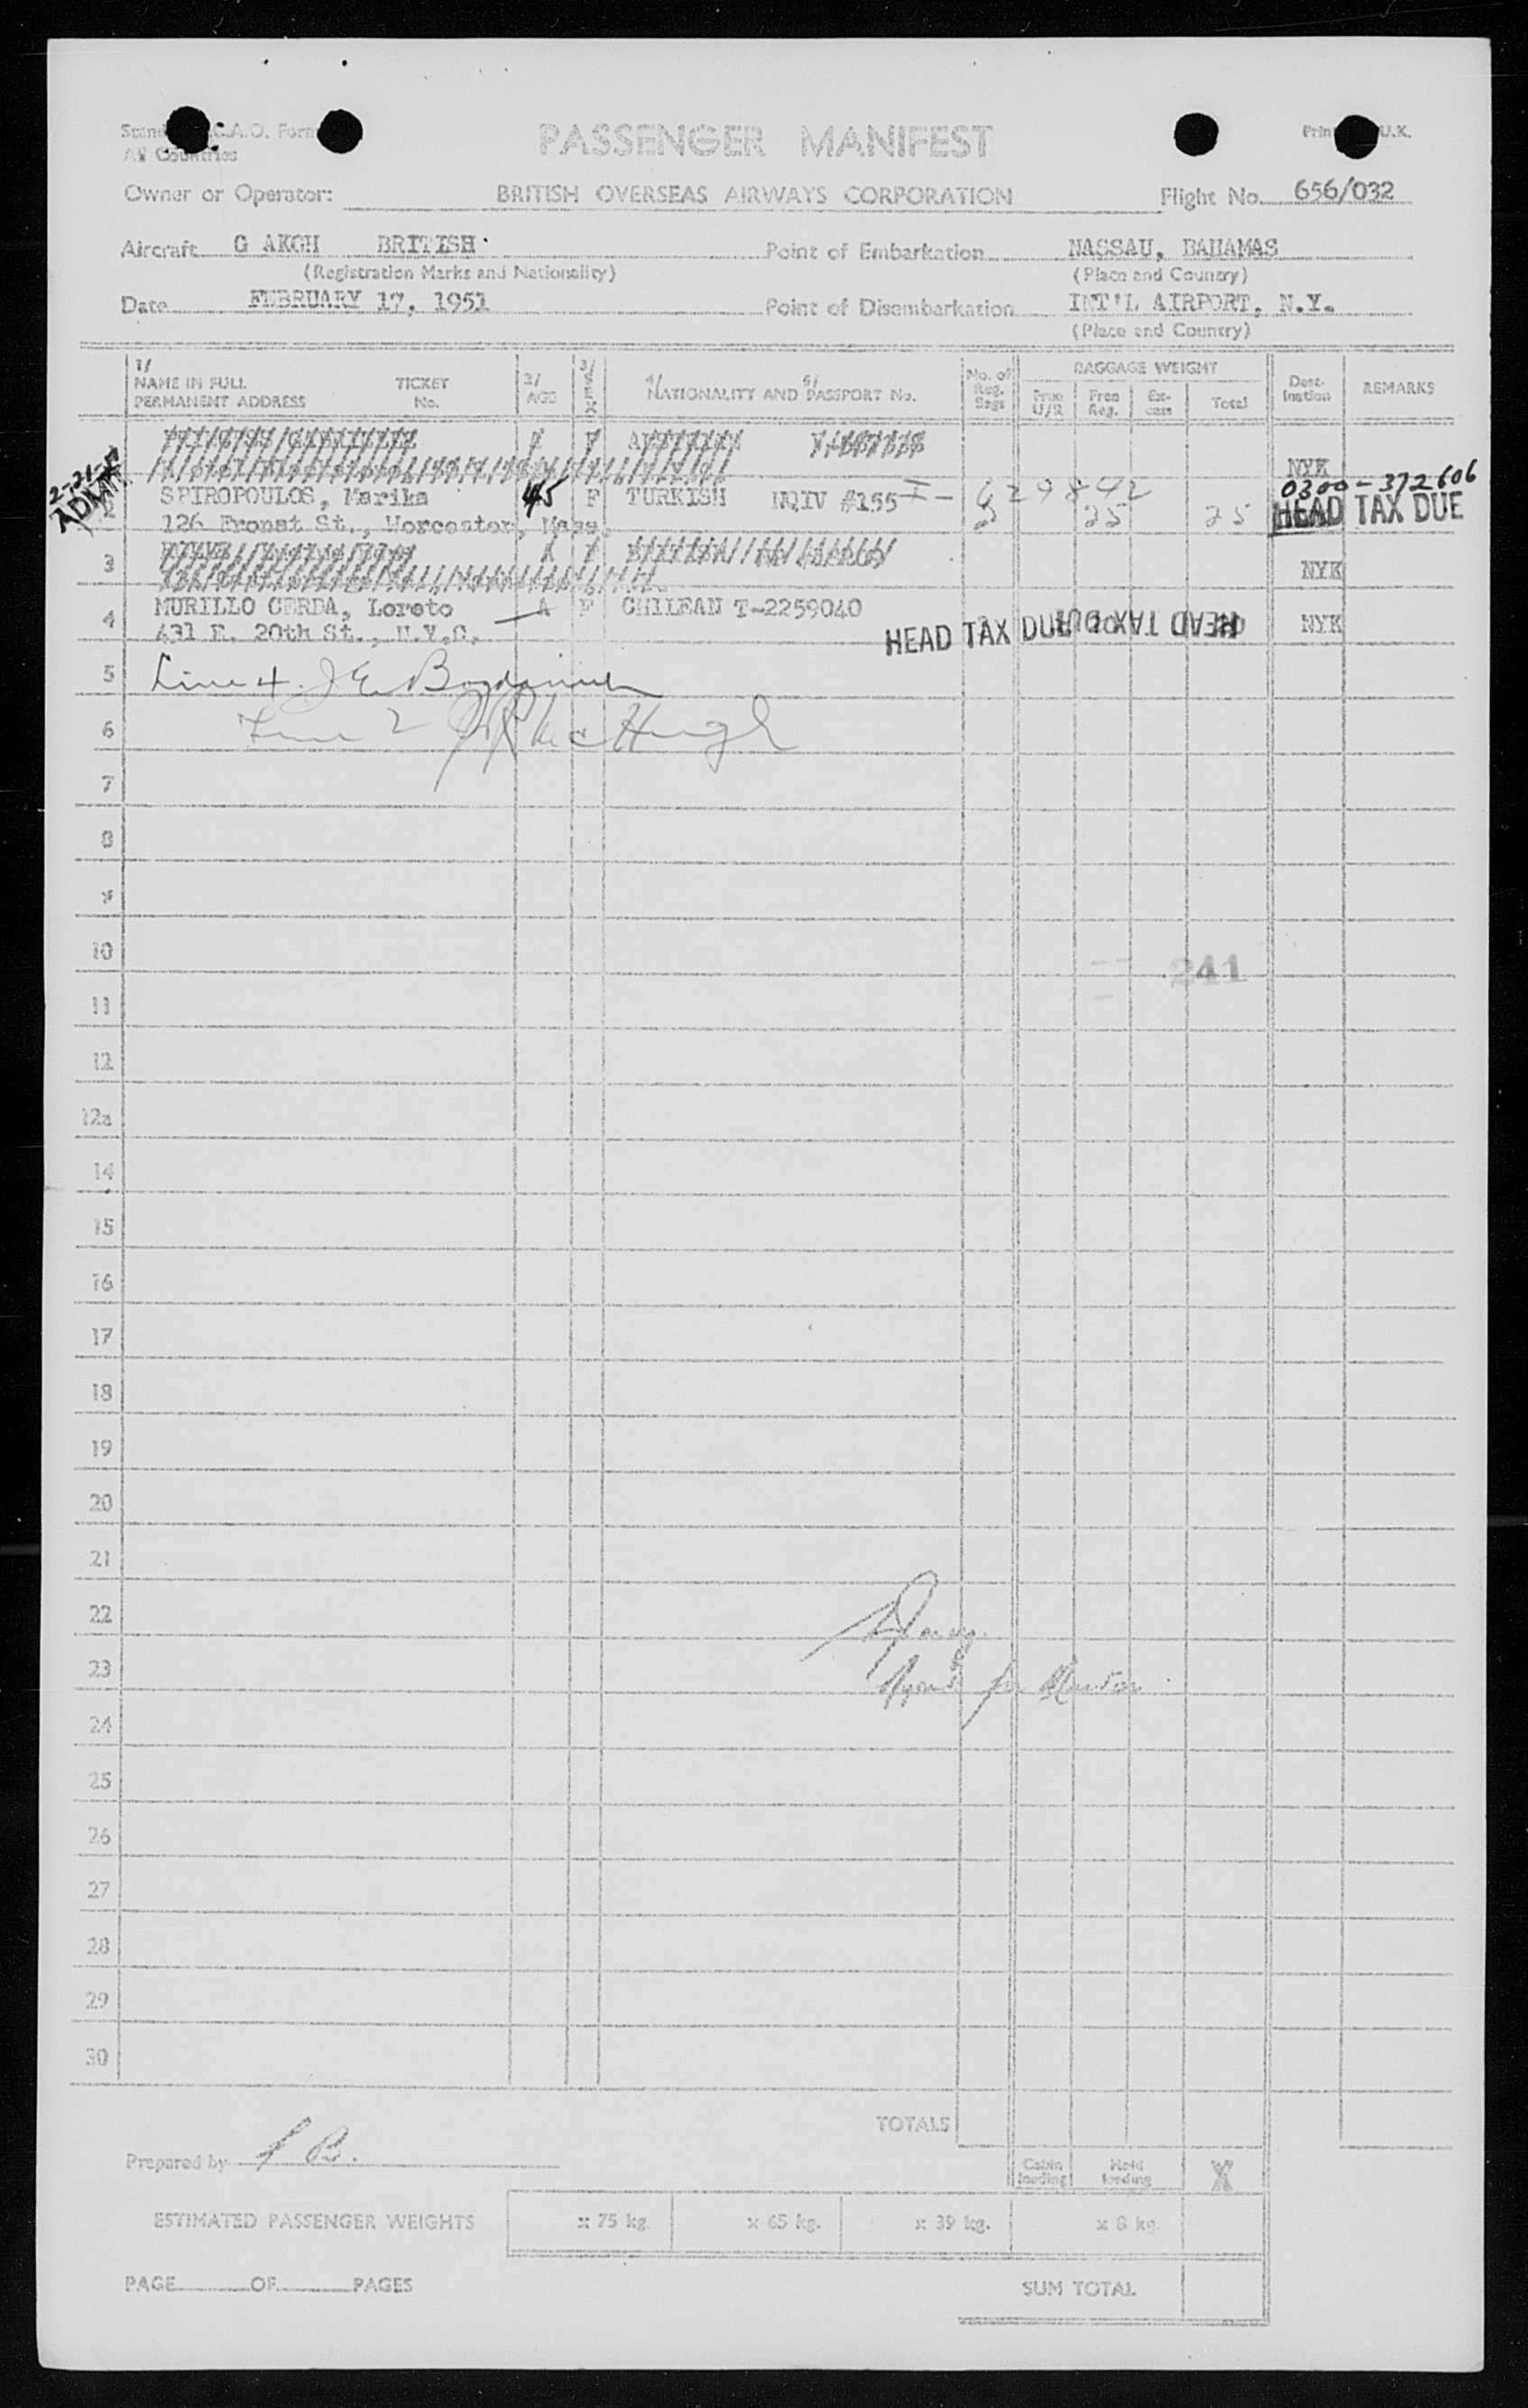 PASSENGER MANIFEST
All Countries
Owner or Operator: BRITISH OVERSEAS AIRWAYS CORPORATION Flight No. 656/032
Aircraft G AKGH BRITISH Point of Embarkation NASSAU, BAHAMAS
(Registration Marks and Nationality) (Place and Country)
Date FEBRUARY 17, 1951 Point of Disembarkation INT'L AIRPORT, N.Y.
(Place and Country)
1/ NAME IN FULL PERMANENT ADDRESS TICKET No. 2/ AGE 3/ SEX 4/ NATIONALITY AND 5/ PASSPORT No. No. of Reg. Bags BAGGAGE WEIGHT Free U/R Free Reg. Ex-cess Total Dest-ination REMARKS
NYK
2 SPIROPOULOS, Marika 45 F TURKISH NQIV #155 I- 629842 0300-372606
126 St., Worcester, Mass. 2 25 25 HEAD TAX DUE
3 NYK
4 MURILLO CERDA, Loreto A F CHILEAN T-2259040 HEAD TAX DUE HEAD TAX DUE NYK
431 E. 20th St., N.Y.C.
5 Line 4. J E
6 Line 2 McHugh
7
8
9
10 241
11
12
12a
14
15
16
17
18
19
20
21
22
23 Agent for Master
24
25
26
27
28
29
30
TOTALS
Prepared by Cabin loading Hold loading X
ESTIMATED PASSENGER WEIGHTS x 75 kg. x 65 kg. x 39 kg. x 8 kg.
PAGE OF PAGES SUM TOTAL